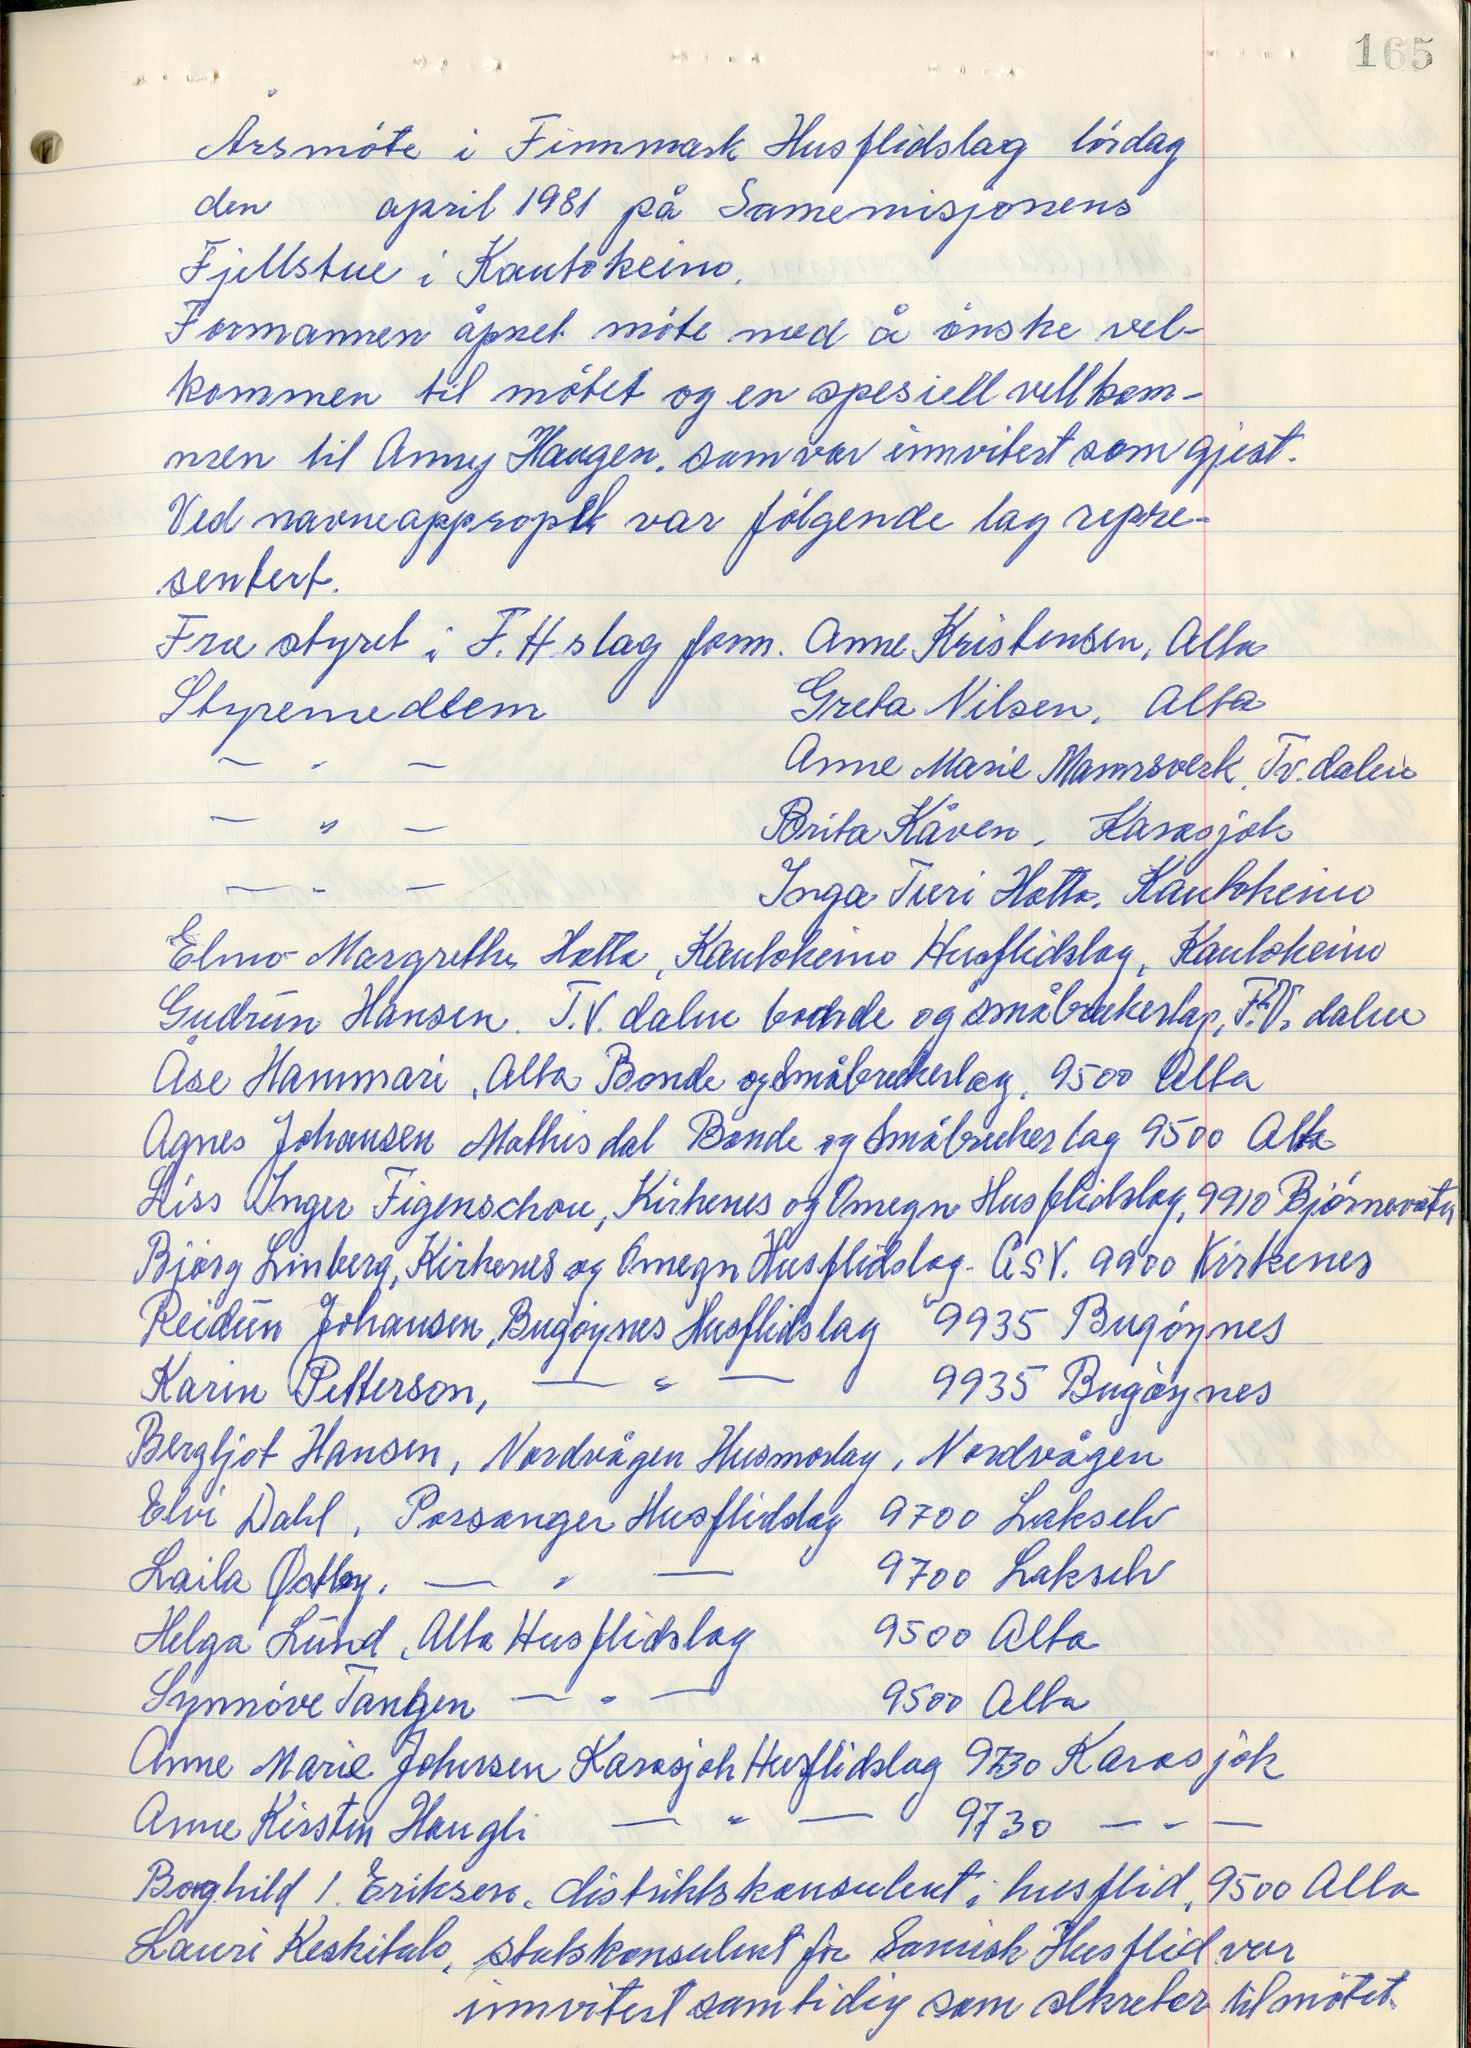 165
Årsmöte i Finnmark Husflidslag lördag
den april 1981 på Samemisjonens
Fjellstue i Kautokeino.
Formannen åpnet möte med å önske vel-
kommen til mötet og en spesiell vellkom-
men til Anny Haugen. som var innvitert som gjest.
Ved navneapprop var fölgende lag repre-
sentert.
Fra styret i F.H slag form. Anne Kristensen, Alta
Styremedlem Greta Nilsen, Alta
— " — Anne Marie Mannsverk, Tv. dalen
— " — Brita Kåven, Karasjok
— " — Inga Turi Hætta, Kautokeino
Elmo Margrethe Hætta, Kautokeino Husflidslag, Kautokeino
Gudrun Hansen. T.V. dalen bonde og småbrukerlag, T.V. dalen
Åse Hammari, Alta Bonde og Småbrukerlag, 9500 Alta
Agnes Johansen Mathisdal Bonde og Småbrukerlag 9500 Alta
Liss Inger Figenschou, Kirkenes og Omegn Husflidslag, 9910 Björnevatn
Björg Linberg, Kirkenes og Omegn Husflidslag. ASV. 9900 Kirkenes
Reidun Johansen, Bugöynes Husflidslag 9935 Bugöynes
Karin Petterson, — " — 9935 Bugöynes
Bergljot Hansen, Nordvågen Husmorlag, Nordvågen
Elvi Dahl, Porsanger Husflidslag 9700 Lakselv
Laila Østby. — " — 9700 Lakselv
Helga Lund, Alta Husflidslag 9500 Alta
Synnöve Tangen — " — 9500 Alta
Anne Marie Johnsen Karasjok Husflidslag 9730 Karasjok
Anne Kirsten Haugli — " — 9730 — " —
Borghild I. Eriksen, distriktskonsulent i husflid, 9500 Alta
Lauri Keskitalo, statskonsulent for Samisk Husflid var
innvitert samtidig som sekretær til mötet.